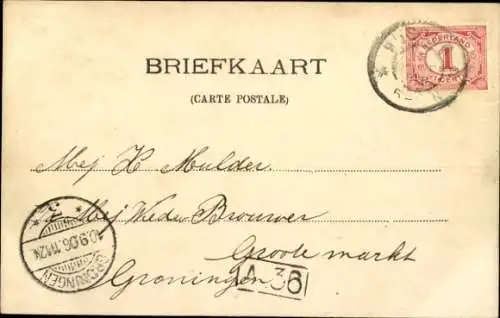 BRIEFKAART
(CARTE POSTALE)
NEDERLAND
1
CENT
Mej H Mulder.
Mej Weduw Brouwer
Groote markt
Groningen
A 36
3
10.9.06.11-12V
GRONINGEN